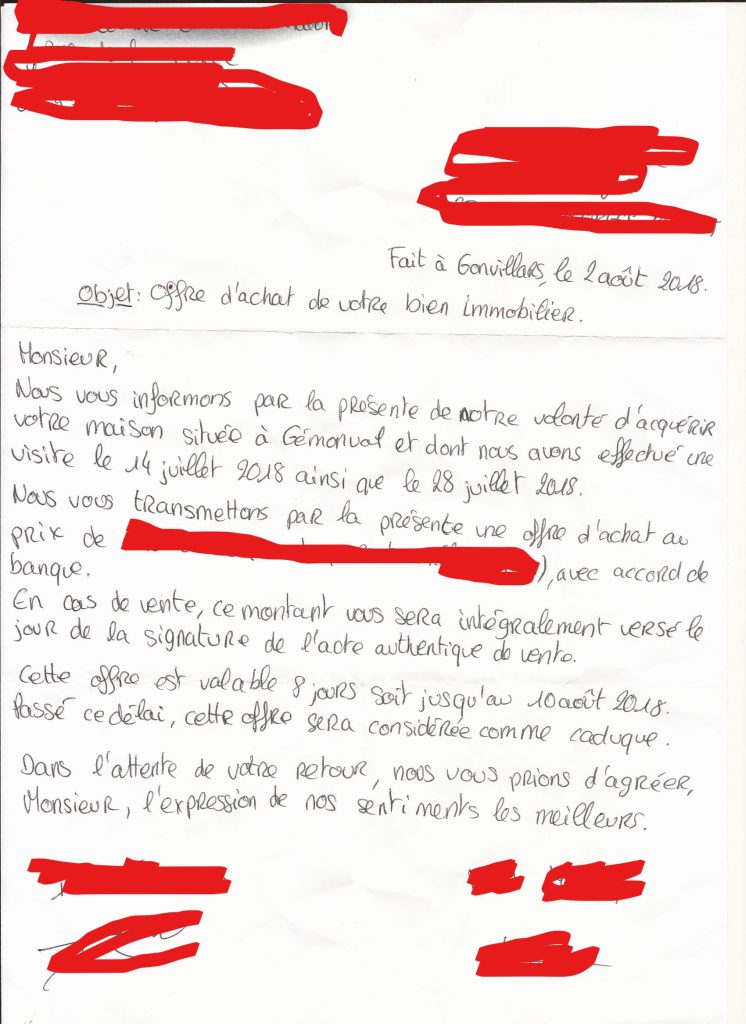 Fait à Gonvillars, le 2 août 2018.
Objet: Offre d'achat de votre bien immobilier.
Monsieur,
Nous vous informons par la présente de notre volonté d'acquérir
votre maison située à Gémonval et dont nous avons effectué une
visite le 14 juillet 2018 ainsi que le 28 juillet 2018.
Nous vous transmettons par la présente une offre d'achat au
prix de ), avec accord de
banque.
En cas de vente, ce montant vous sera intégralement versé le
jour de la signature de l'acte authentique de vente.
Cette offre est valable 8 jours soit jusqu'au 10 août 2018.
Passé ce délai, cette offre sera considérée comme caduque.
Dans l'attente de votre retour, nous vous prions d'agréer,
Monsieur, l'expression de nos sentiments les meilleurs.